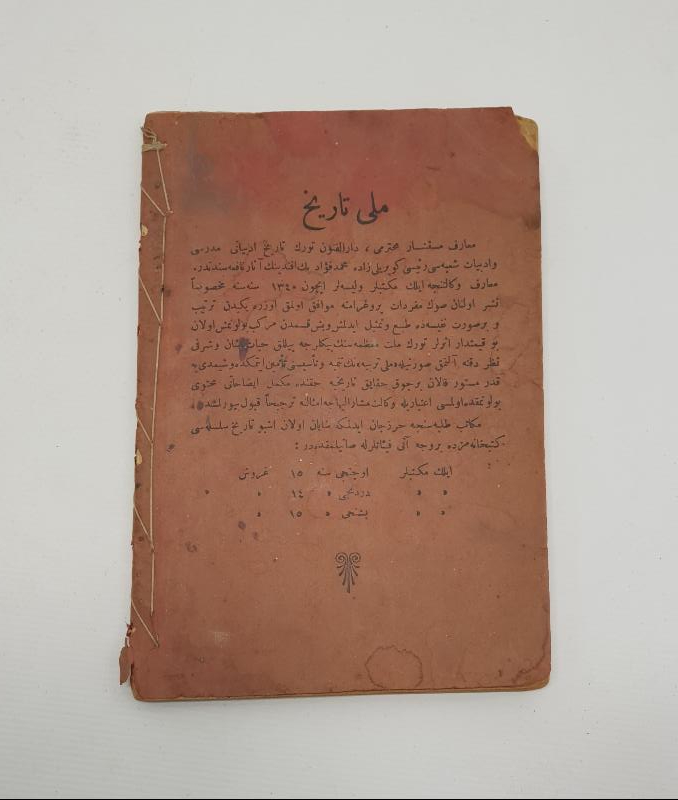 ملی تاریخ
معارف مستشار محترمی ، دارالفنون تورك تاریخ ادبیاتی مدرسی
وادبیات شعبه‌سی رئیسی كوپریلی زاده محمد فؤاد بك افندینك آثار نافعه‌سندندر.
معارف وكالتنجه ایلك مكتبلر ولیسه‌لر ایچون ١٣٤٠ سنه‌سنه مخصوصاً
نشر اولنان صوك مفردات پروغرامنه موافق اولمق اوزره یكیدن ترتیب
و بر صورت نفیسه‌ده طبع وتمثیل ایدلمش وبش قسمدن مركب بولونمش اولان
بو قیمتدار اثرلر تورك ملت معظمه‌سنك بیكلرجه ییللق حیات شان وشرفی
نظر دقته آلنمق صورتیله ملی تربیه‌نك تنمیه وتأسیسنی تأمین ایتمكده وشیمدی‌یه
قدر مستور قالان برچوق حقایق تاریخیه حقنده مكمل ایضاحاتی محتوی
بولونمقده اولمسی اعتباریله وكالت مشارالیهاجه امثالنه ترجیحاً قبول بیورلمشدر.
مكاتب طلبه‌سنجه حرزجان ایدلمكه شایان اولان اشبو تاریخ سلسله‌سی
كتبخانه‌مزده بروجه آتی فیئاتلرله صاتیلمقده‌در :
ایلك مكتبلر اوچنجی سنه ١٥ غروش
» » دردنجی » ١٤ »
» » بشنجی » ١٥ »